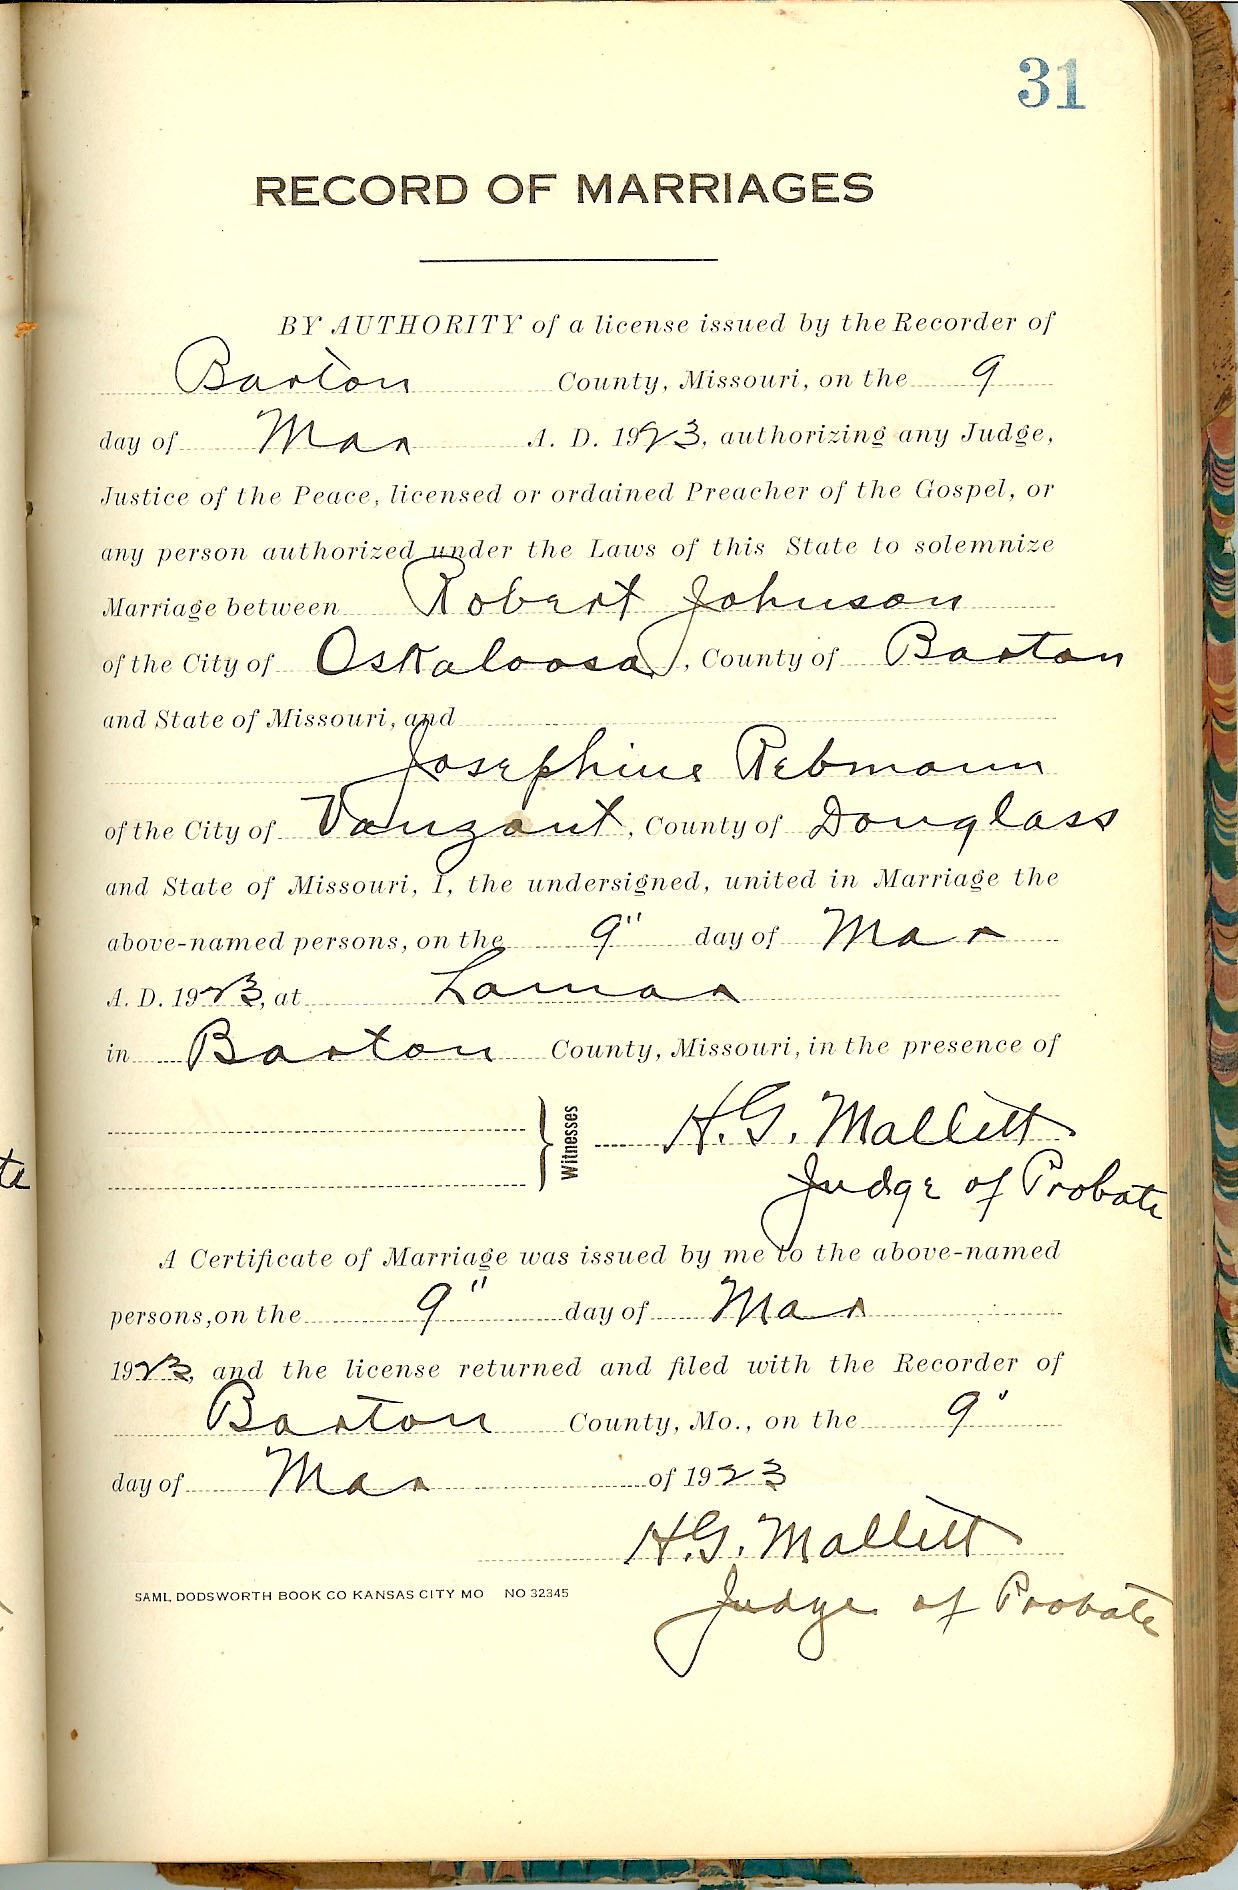 31
RECORD OF MARRIAGES
BY AUTHORITY of a license issued by the Recorder of
Barton County, Missouri, on the 9
day of Mar A. D. 1923, authorizing any Judge,
Justice of the Peace, licensed or ordained Preacher of the Gospel, or
any person authorized under the Laws of this State to solemnize
Marriage between Robert Johnson
of the City of Oskaloosa, County of Barton
and State of Missouri, and
Josephine Rebmann
of the City of Vanzant, County of Douglass
and State of Missouri, I, the undersigned, united in Marriage the
above-named persons, on the 9" day of Mar
A. D. 1923, at Lamar
in Barton County, Missouri, in the presence of
Witnesses H. G. Mallett
Judge of Probate
A Certificate of Marriage was issued by me to the above-named
persons, on the 9" day of Mar
1923, and the license returned and filed with the Recorder of
Barton County, Mo., on the 9"
day of Mar of 1923
H. G. Mallett
SAML DODSWORTH BOOK CO KANSAS CITY MO NO 32345
Judge of Probate